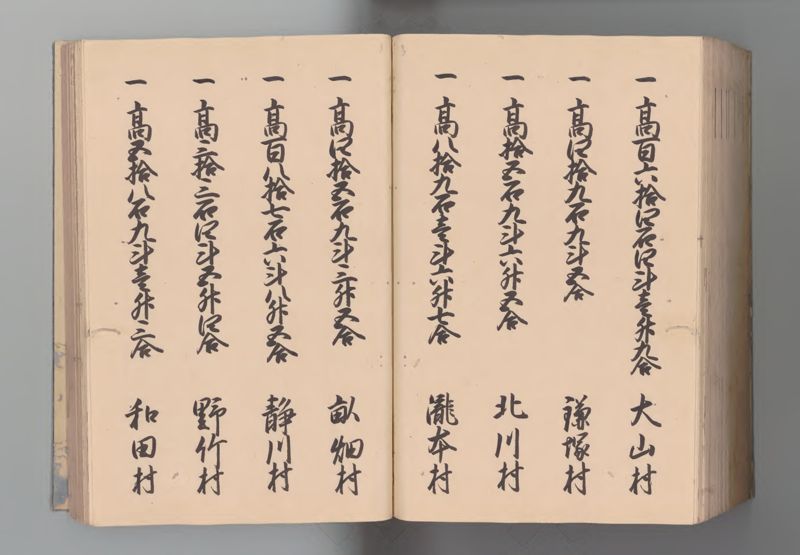 一 高百六拾四石四斗壱升九合 大山村
一 高四拾九石九斗五合 鎌塚村
一 高拾五石九斗六升五合 北川村
一 高八拾九石壱斗六升七合 瀧本村
一 高四拾五石九斗三升五合 畝畑村
一 高百八拾七石六斗八升五合 静川村
一 高三拾三石四斗五升四合 野竹村
一 高五拾八石九斗壱升三合 和田村